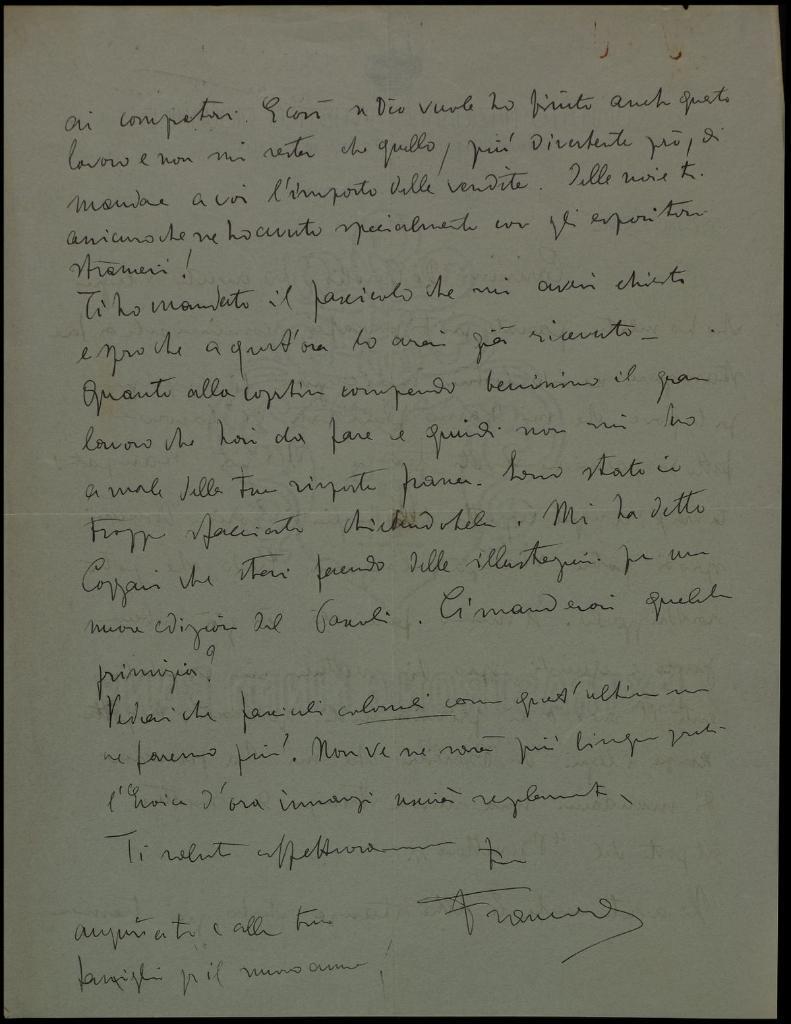 ai compratori. E così se Dio vuole ho finito anche questo
lavoro e non mi resta che quello, più divertente però, di
mandare a voi l'importo delle vendite. Delle noie ti
assicuro che ne ho avute specialmente con gli espositori
stranieri!
Ti ho mandato il fascicolo che mi avevi chiesto
e spero che a quest'ora lo avrai già ricevuto_
Quanto alla copertina comprendo benissimo il gran
lavoro che hai da fare e quindi non mi ho
a male della tua risposta franca. Sono stato io
troppo sfacciato chiedendotela. Mi ha detto
Cozzani che stai facendo delle illustrazioni per una
nuova edizione del Pascoli. Ci manderai qualche
primizia?
Vedrai che fascicoli colossali come quest'ultimo non
ne faremo più. Non ve ne sarà più bisogno perché
l'Eroica d'ora innanzi uscirà regolarmente
Ti saluto affettuosamente tuo
Francesco
auguri a te e alla tua
famiglia p'il nuovo anno!